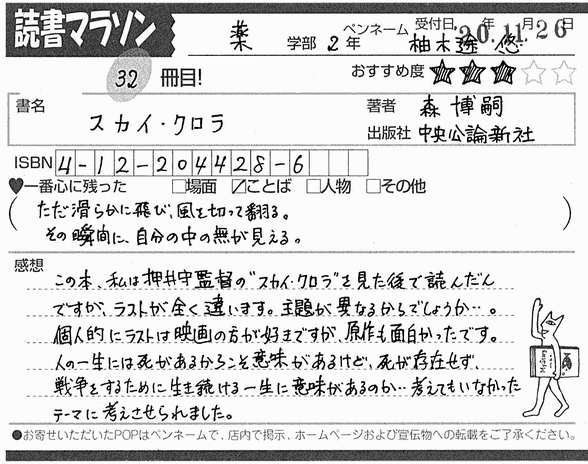 読書マラソン
薬 学部 2 年 ペンネーム 柚木遥 悠 受付日 '20.年11.月26日
32 冊目! おすすめ度 ★★★☆☆
書名 スカイ・クロラ
著者 森 博嗣
出版社 中央公論新社
ISBN 4-12-204428-6
♥一番心に残った □場面 ☑ことば □人物 □その他
(ただ滑らかに飛び、風を切って翻る。
その瞬間に、自分の中の無が見える。)
感想
この本、私は押井守監督の"スカイ・クロラ"を見た後で読んだん
ですが、ラストが全く違います。主題が異なるからでしょうか…。
個人的にラストは映画の方が好きですが、原作も面白かったです。
人の一生には死があるからこそ意味があるけど、死が存在せず、
戦争をするために生き続ける一生に意味があるのか…考えてもいなかった
テーマに考えさせられました。
●お寄せいただいたPOPはペンネームで、店内で掲示、ホームページおよび宣伝物への転載をご了承ください。